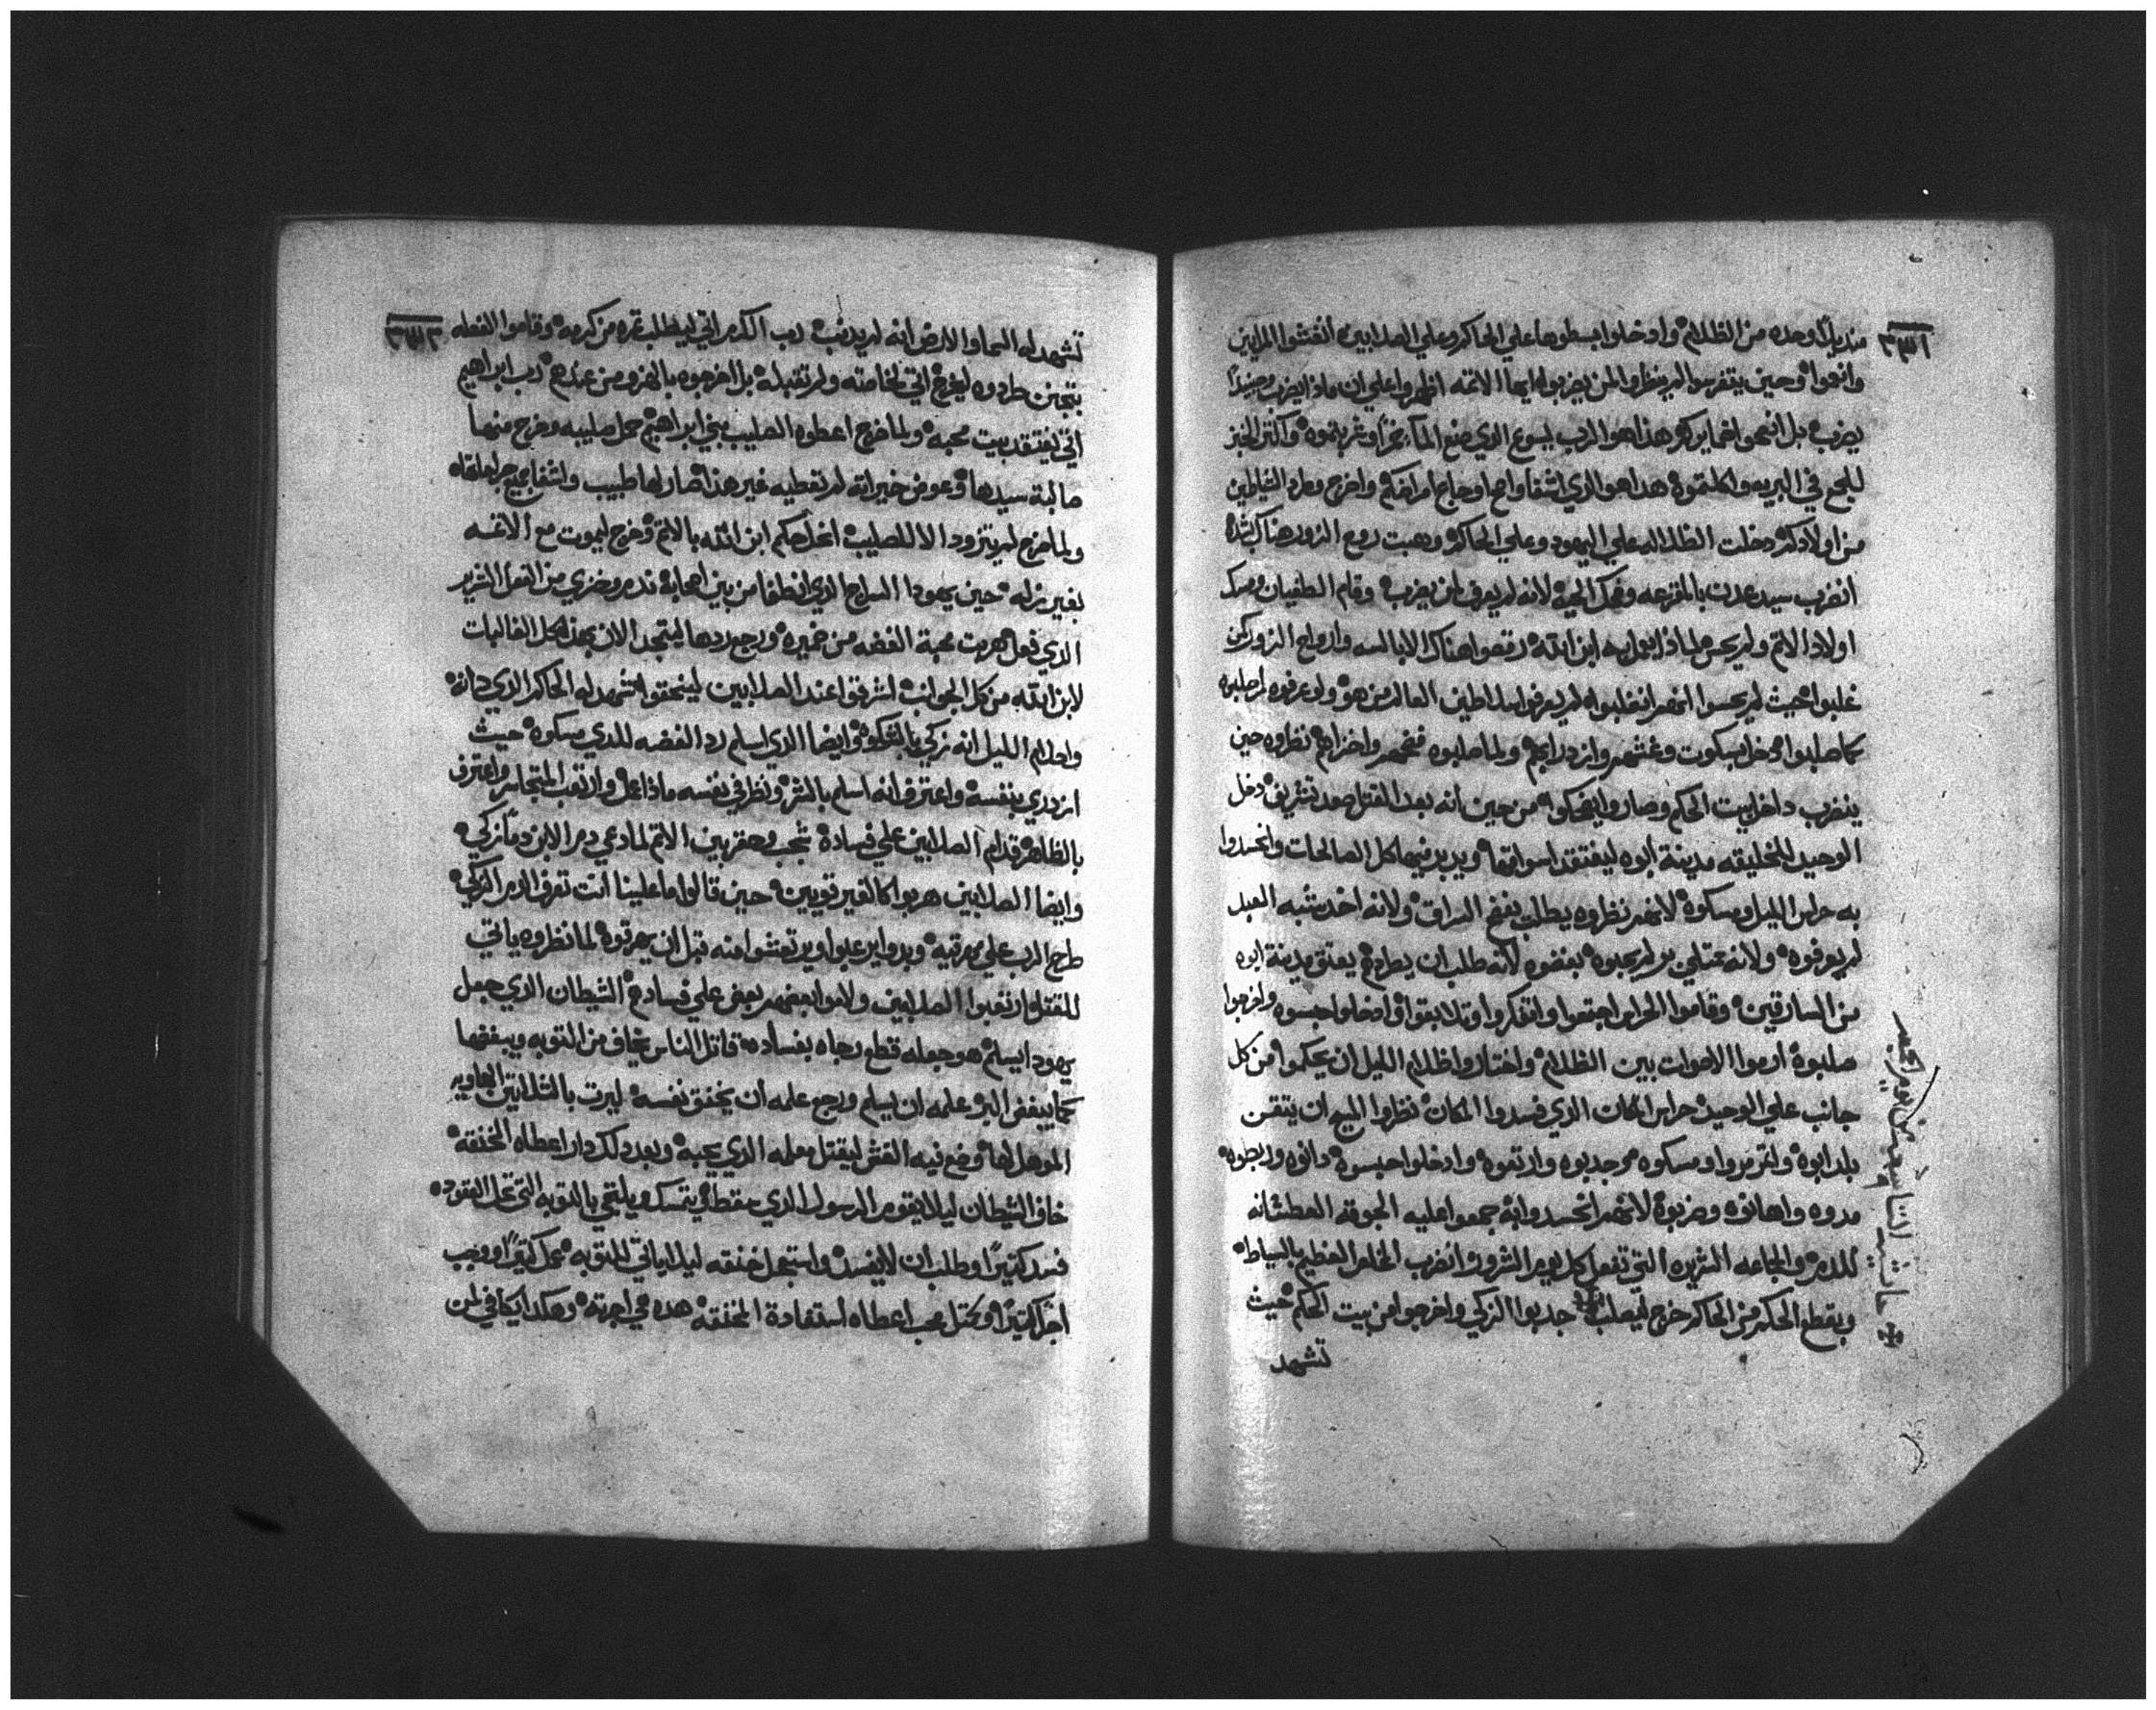 منديلاً وحده من الظلام وادخلوا بسطوها علي الحاكم وعلي الصلابين انغشوا الملايين
وانعموا وحين يتفرسوا لم ينظروا لمن يضربوا ايها الاتمه اظهروا علي ان ماذا يضرب وحينيذاً
يضرب بل انعموا اخبايركم هذا هو الرب يسوع الذي صنع المآ خمراً وشربتموه وأكتر الخبز
للجمع في البريه واكلتموه هدا هو الذي اشفا واحيا وعالج امراضكم واخرج وطرد الشياطين
من اولادكم دخلت الظلاله علي اليهود وعلي الحاكم وهبت روح الزور هناك بشده
انضرب سيد عدت بالمقرعه وضحك الحيه لانه لم يعرف لمن يضرب وقام الطغيان ومسك
اولاد الاتم ولم يحس لماذا يعمل به ابن الله رقصوا هناك الابالسه وارواح الزور كمن
غلبوا حيث لم يحسوا انهم انغلبوا لم يعرفوا سلاطين العالم من هو ولو عرفوه لم صلبوه
كما صلبوا دخل بسكوت وغشهم وازدرا بهم ولما صلبوه فضحهم واخزاهم نظروه حين
ينضرب داخل بيت الحكم وصاروا يضحكوا من حين انه بعد القتل صعد بتشريف دخل
الوحيد للخليقه مدينة ابوه ليفتقد اسواقها ويدبر فيها كل الصالحات وانحسدوا
به حراس الليل ومسكوه لانهم نظروه يطلب يفضح السراق ولانه اخد شبه العبد
لم يعرفوه ولانه ممتلي بر لم يحبوه بغضوه لانه طلب ان يطردهم يعتق مدينة ابوه
من السارقين وقاموا الحراس اجتمعوا وافتكروا وتلابقوا وادخلوا حبسوه واخرجوا
صلبوه ارموا الاصوات بين الظلام واختاروا ظلام الليل ان يحكموا من كل
جانب علي الوحيد حراس المكان الذي فسدوا المكان نظروا المسيح ان يتقن
بلد ابوه وانتمروا ومسكوه وجدبوه واوتقوه وادخلوا حبسوه دانوه وربطوه
مدوه واهانوه وضربوه لانهم انحسدوا به جمعوا عليه الجوقه العطشانه
للدم والجماعه الشريره التي تفعل كل يوم الشرور انضرب المخلص العظيم بالسياط
وبقطع الحكم من الحاكم خرج ليصلب جدبوا الزكي واخرجوا من بيت الحكم حيث
تشهد
تشهد له السما والارض انه لم يدنب رب الكرم اتي ليطلب تمره من كرمه وقاموا الفعله
بتجنن طردوه ليخرج اتي لخاصته ولم تقبله بل اخرجوه بالهزو من عندهم رب ابراهيم
اتي يفتقد بيت محبه ولما خرج اعطوه الصليب بني ابراهيم حمل صليبه وخرج منها
صالبة سيدها وعوض خيراته لم تعطيه غير هذا صار لها طبيب واشفا جميع جراحاتها
ولما خرج لم يتزود الا للصليب انحكم ابن الله بالاتم وخرج ليموت مع الاتمه
بغير زله حين يهودا السراج الذي انطفا من بين اصحابه ندم وخزي من الفعل الشرير
الذي فعل هربت محبة الفضه من ضميره ورجع ردها ليتمجد الان بهذا كل الغالبات
لابن الله من كل الجوانب اشرقوا عند الصلابين لينخفوا شهد له الحاكم الذي دانه
واحلام الليل انه زكي بالشكوه وايضا الذي اسلم رد الفضه للذي مسكوه حيث
ازدري بنفسه واعترف انه اسلم بالشر ونظر في نفسه ماذا عمل وارتعب المتجاسر واعترف
بالظاهر قدام الصلابين علي فساده شجب وحقر بنين الاتم لما دعي دم الابن دماً زكي
وايضا الصلابين هربوا كالغير قويين حين قالوا ما علينا انت تعرف الدم الزكي
طرح الرب علي مهرقيه وبدوا يرعبوا ويرتعشوا منه قبل ان يهرقوه لما نظروه ياتي
للقتل ارتعبوا الصلابين ولاموا بعضهم بعض علي فسادهم الشيطان الذي جعل
يهودا يسلم هو جعله قطع رجاه بفساده قاتل الناس يخاف من التوبه ويبغضها
كما يبغض البر علمه ان يسلم ورجع علمه أن يخنق نفسه ليرت بالشلاتين الهاويه
الموهل لها وضع فيه الغش ليقتل معلمه الذي يحبه وبعد دلك دار اعطاه المخنقه
خاف الشيطان ليلا يقوم الرسول الذي سقط لي يتمسك ويلتجي بالتوبه التي تحل العقود
فسد كتيراً وطلب ان لا يفسد واستعجل خنقه ليلا ياتي للتوبه عمل كتيراً ووجب
اجراً كتيراً ومحتل محب اعطاه استفادة المخنقه هده هي اجرته وهكدا يكافي لمن